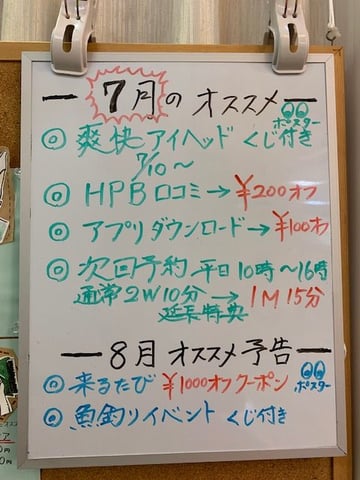 7月のオススメ
◎ 爽快アイヘッド くじ付き ポスター
7/10〜
◎ HPB口コミ→¥200オフ
◎ アプリダウンロード→¥100オフ
◎ 次回予約 平日10時〜16時
通常2W10分→1M15分
延長特典
8月オススメ予告
◎ 来るたび ¥1000オフクーポン ポスター
◎ 魚釣りイベント くじ付き